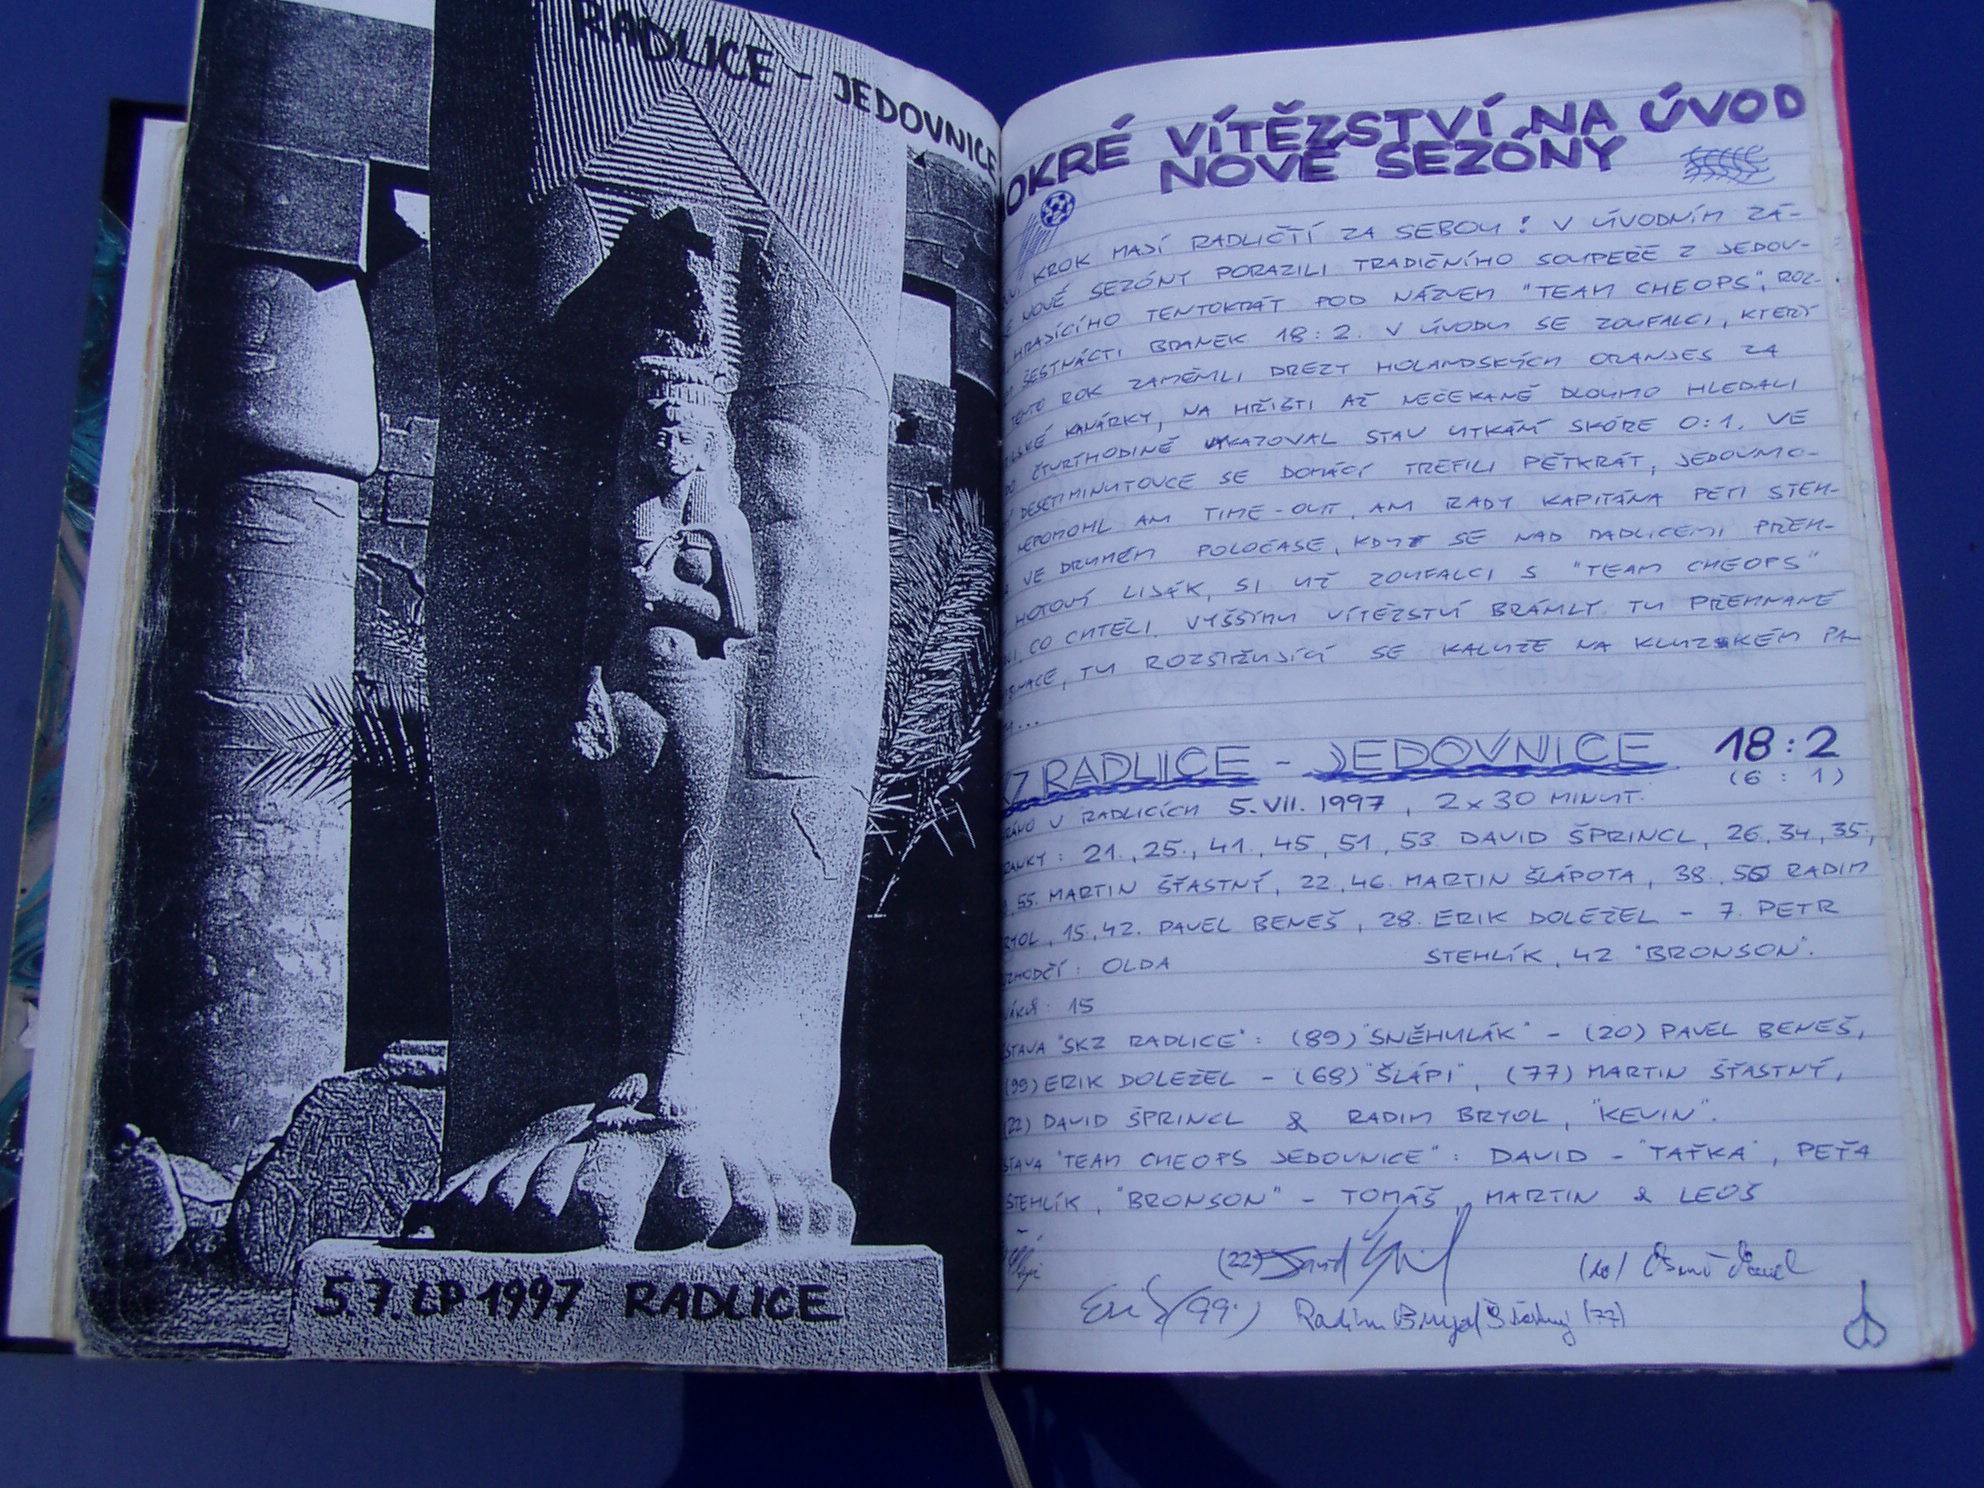 RADLICE - JEDOVNICE
5.7. LP 1997 RADLICE
OKRÉ VÍTĚZSTVÍ NA ÚVOD
NOVÉ SEZÓNY
KROK MAJÍ RADLIČTÍ ZA SEBOU! V ÚVODNÍM ZÁ-
NOVÉ SEZÓNY PORAZILI TRADIČNÍHO SOUPEŘE Z JEDOV-
HRAJÍCÍHO TENTOKRÁT POD NÁZVEM "TEAM CHEOPS", ROZ-
ŠESTNÁCTI BRANEK 18:2. V ÚVODU SE ZOUFALCI, KTEŘÍ
TENTO ROK ZAMĚNILI DREZY HOLANDSKÝCH ORANJES ZA
KANÁRKY, NA HŘIŠTI AŽ NEČEKANĚ DLOUHO HLEDALI
ČTVRTHODINĚ UKAZOVAL STAV UTKÁNÍ SKÓRE 0:1. VE
DESETIMINUTOVCE SE DOMÁCÍ TREFILI PĚTKRÁT, JEDOVNO-
NEPOMOHL ANI TIME-OUT, ANI RADY KAPITÁNA PETI STEH-
VE DRUHÉM POLOČASE, KDY SE NAD RADLICEMI PŘEH-
HOTOVÝ LIJÁK, SI UŽ ZOUFALCI S "TEAM CHEOPS"
CO CHTĚLI. VYŠŠÍMU VÍTĚZSTVÍ BRÁNILY TU PŘEHNANÉ
TU ROZŠIŘUJÍCÍ SE KALUŽE NA KLUZKÉM PA-
KZ RADLICE - JEDOVNICE 18:2
(6:1)
V RADLICÍCH 5.VII.1997, 2x30 MINUT.
RANKY: 21.,25.,41.,45.,51.,53 DAVID ŠPRINCL, 26.,34.,35.,
55. MARTIN ŠŤASTNÝ, 22.,46. MARTIN ŠLÁPOTA, 38.,50 RADIM
BRYOL, 15.,42. PAVEL BENEŠ, 28. ERIK DOLEŽEL - 7. PETR
STEHLÍK, 42 "BRONSON".
ZHODČÍ: OLDA
ÁKŮ: 15
STAVA "SKZ RADLICE": (89) "SNĚHULÁK" - (20) PAVEL BENEŠ,
(99) ERIK DOLEŽEL - (68) "ŠLÁPI", (77) MARTIN ŠŤASTNÝ,
(22) DAVID ŠPRINCL & RADIM BRYOL, "KEVIN".
STAVA "TEAM CHEOPS JEDOVNICE": DAVID - "TAŤKA", PEŤA
STEHLÍK, "BRONSON" - TOMÁŠ, MARTIN & LEOŠ
(22) David
(20) Beneš Pavel
(99.) Radim Bryol Šťastný (77)